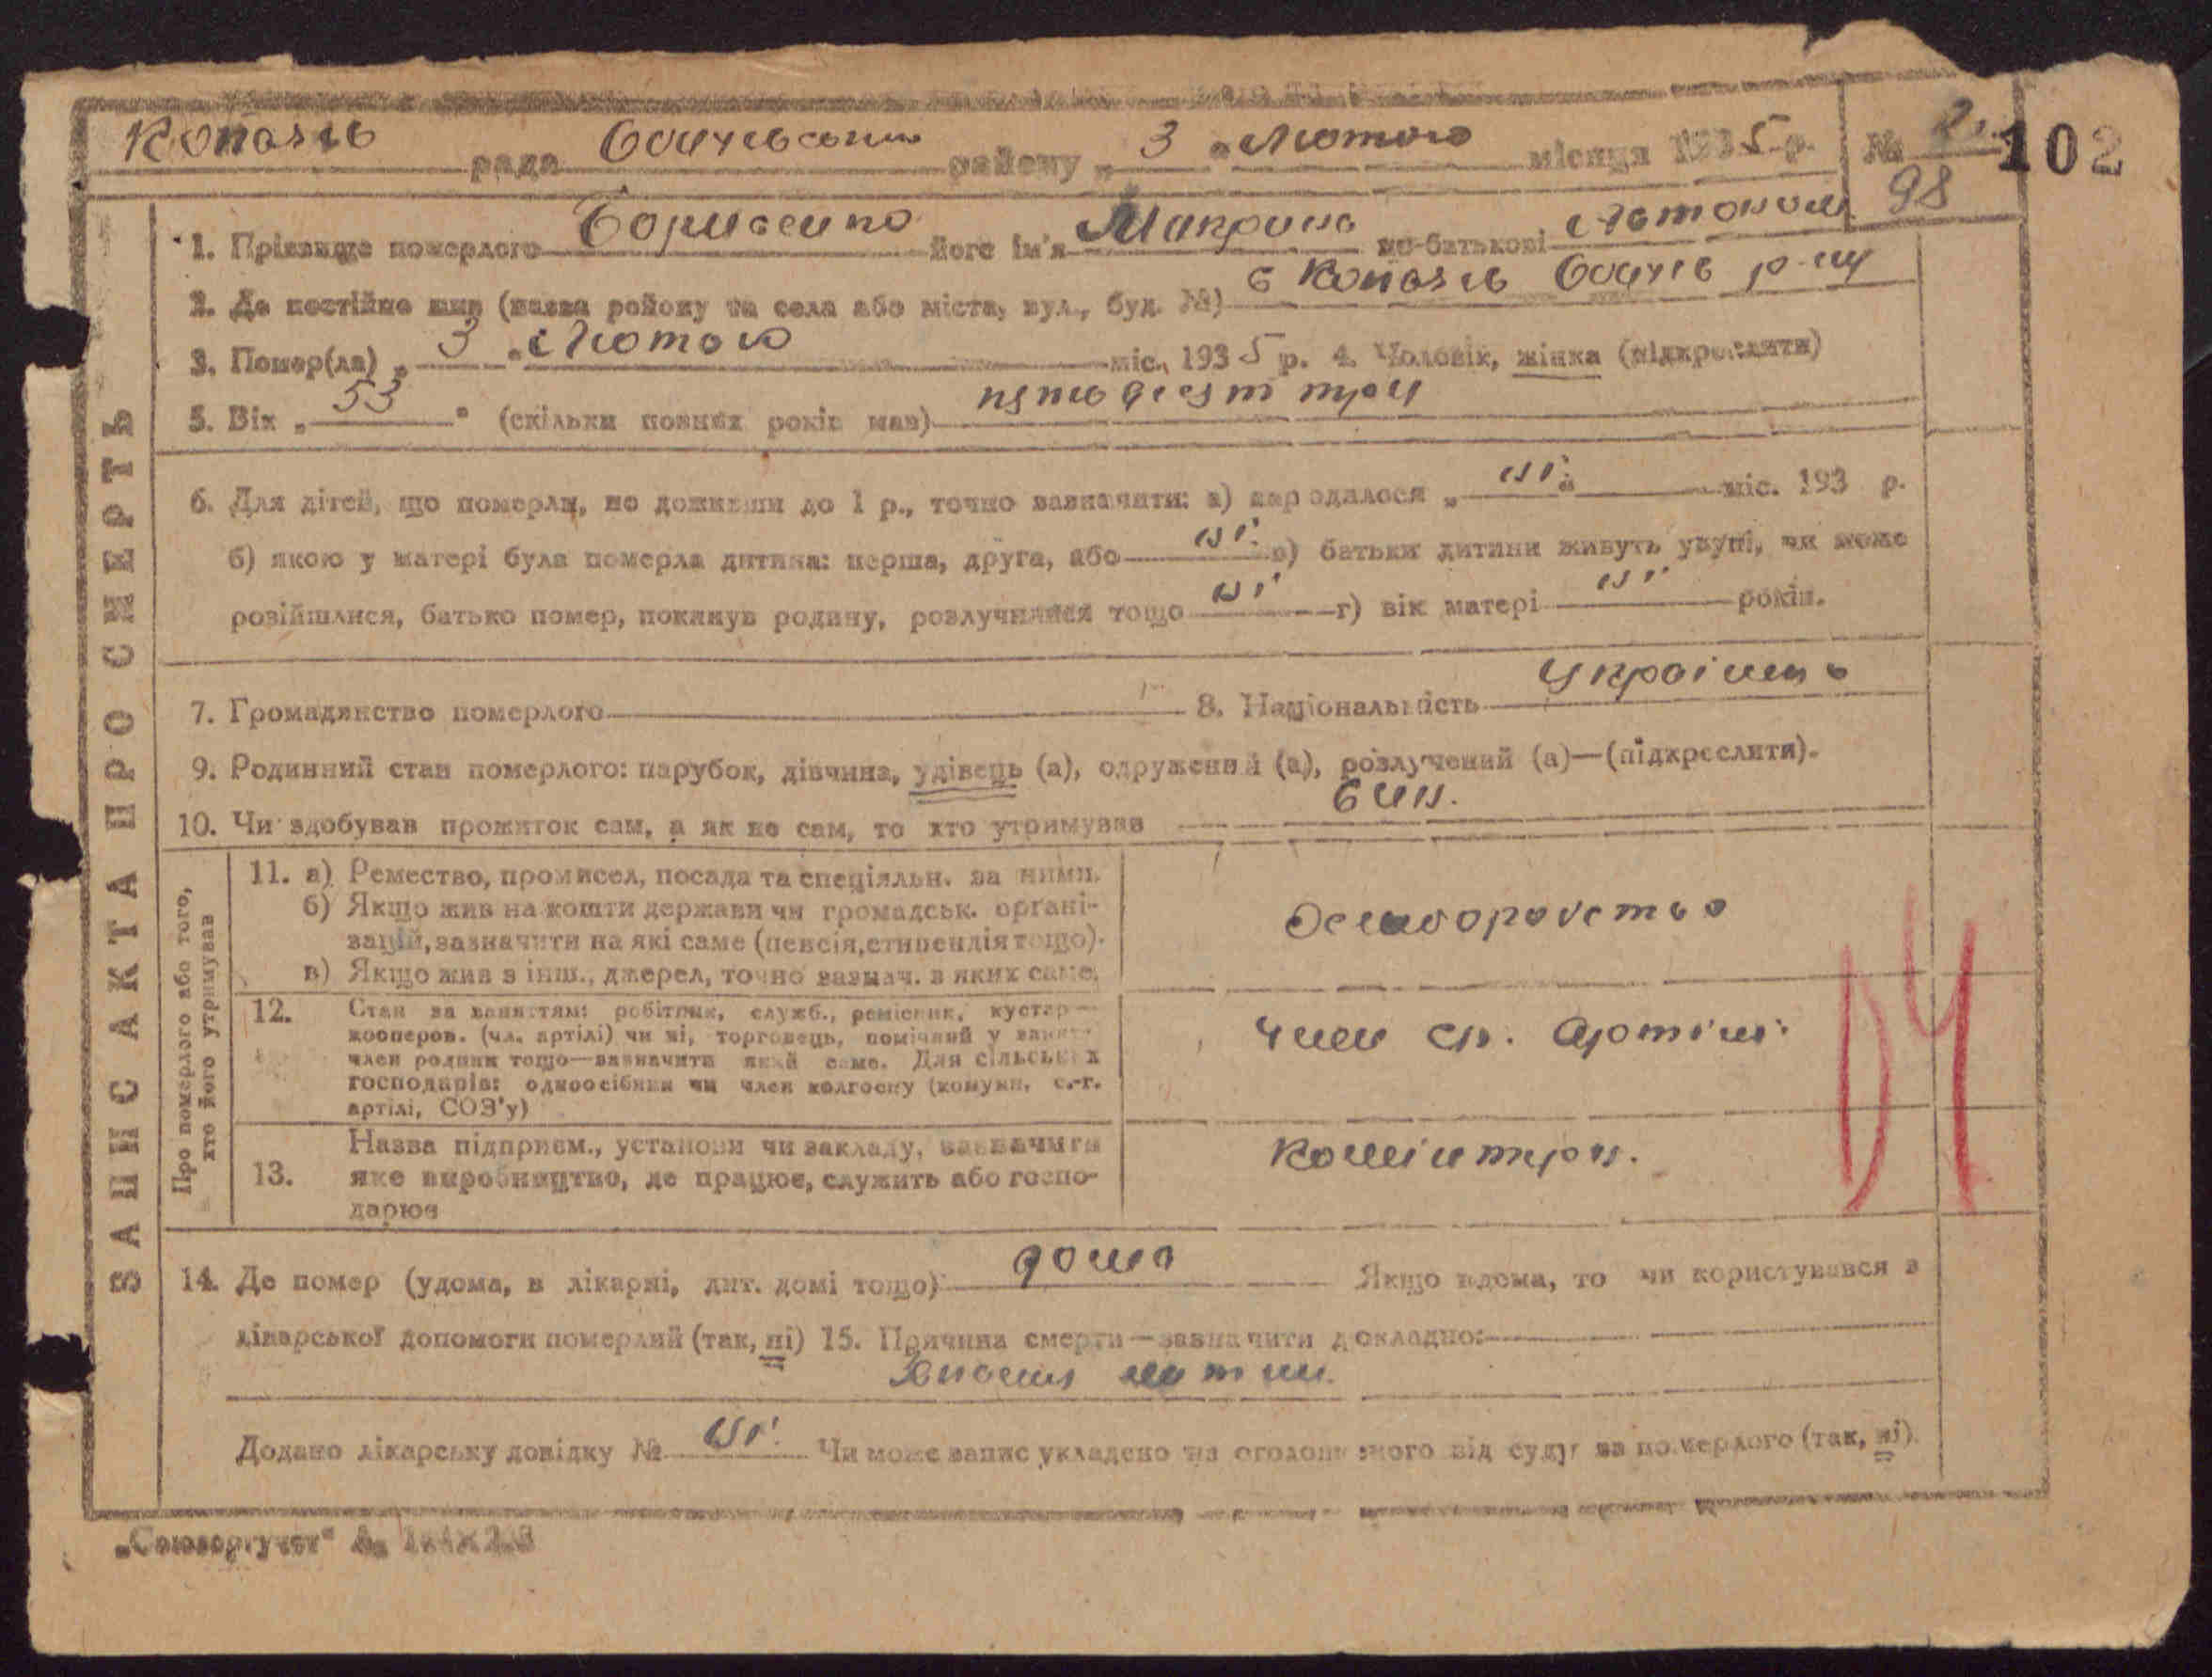 Копачів рада района „ 3 " Лютого місяця 1935 р. № 2
102
98
1. Прізвище померлого Борисенко його ім'я Макрина по-батькові Автоном.
2. Де постійно жив (назва району та села або міста, вул., буд. №) с Копачів р-ну
3. Помер(ла) „ 3 " Лютого міс., 1935 р. 4. Чоловік, жінка (підкреслити)
5. Вік „ 53 " (скільки повних років мав) три
6. Для дітей, що померли, не доживши до 1 р., точно зазначити: а) народилося „ " міс. 193 р.
б) якою у матері була померла дитина: перша, друга, або в) батьки дитини живуть укупі, чи може
розійшлися, батько помер, покинув родину, розлучилися тощо г) вік матері років.
7. Громадянство померлого 8. Національність
9. Родинний стан померлого: парубок, дівчина, удівець (а), одружений (а), розлучений (а)—(підкреслити).
10. Чи здобував прожиток сам, а як не сам, то хто утримував син.
ЗАПИС АКТА ПРО СМЕРТЬ
Про померлого або того, хто його утримував
11. а) Ремество, промисел, посада та спеціяльн. за ними.
б) Якщо жив на кошти держави чи громадськ. органі-
зацій, зазначити на які саме (пенсія, стипендія тощо).
в) Якщо жив з інш., джерел, точно зазнач. в яких саме.
12. Стан за заняттям: робітник, служб., ремісник, кустар—
кооперов. (чл. артілі) чи ні, торговець, помічний у занятт.
член родини тощо—зазначити який саме. Для сільських
господарів: одноосібник чи член колгоспу (комуни, с.-г.
артілі, СОЗ'у)
член сг. Артілі
13. Назва підприєм., установи чи закладу, зазначити
яке виробництво, де працює, служить або госпо-
дарює
Комінтерн.
14. Де помер (удома, в лікарні, дит. домі тощо) дома Якщо вдома, то чи користувався з
лікарської допомоги померлий (так, ні) 15. Причина смерти—зазначити докладно:
Додано лікарську довідку № Чи може запис укладено на оголошеного від суду за померлого (так, ні).
„Союзоргучет"